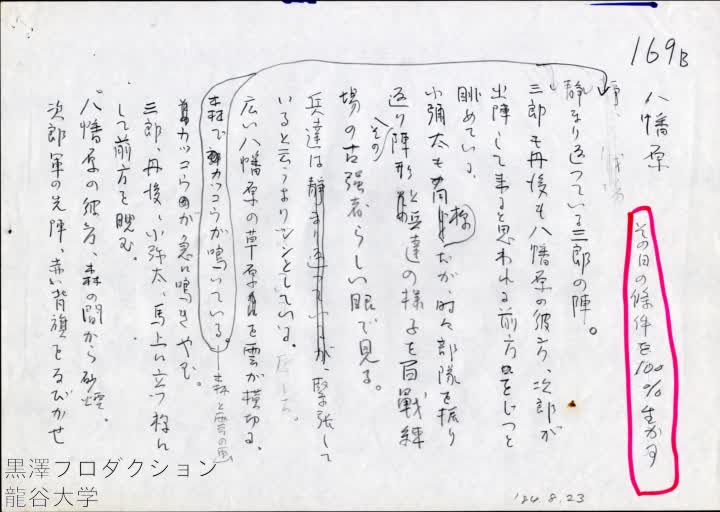 169B
八幡原
その日の條件を100%生かす
静まり返っている三郎の陣。
三郎も丹後も八幡原の彼方、次郎が
出陣して来ると思われる前方をじっと
眺めている。
小彌太も同様だが、時々部隊を振り
返り陣形と兵達の様子を百戦練
その
場の古強者らしい眼で見る。
兵達は静まり返っているが、緊張して
いると云うよりシンとしている。
広い八幡原の草原を雲が横切る。
森でカッコウが鳴いている。
森と雲の画
カッコウが急に鳴きやむ。
三郎、丹後、小弥太、馬上に立つ様に
して前方を睨む。
八幡原の彼方、森の間から砂煙。
次郎軍の先陣、赤い背旗をなびかせ
'84.8.23
黒澤プロダクション
龍谷大学